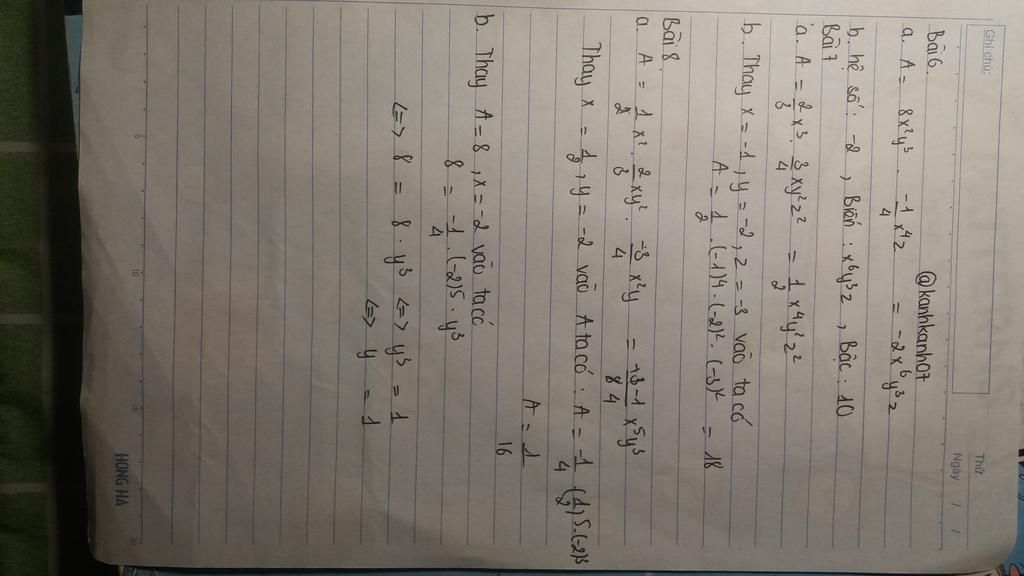 Ghi chú:
Thứ
Ngày / /
@kanhkanh07
Bài 6.
a. A = 8x²y³ . -1/4 x⁴z = -2x⁶y³z
b. hệ số: -2, Biến: x⁶y³z, Bậc: 10
Bài 7
a. A = 2/3 x³ . 3/4 xy²z² = 1/2 x⁴y²z²
b. Thay x = -1, y = -2, z = -3 vào ta có
A = 1/2 . (-1)⁴ . (-2)² . (-3)² = 18
Bài 8.
a. A = 1/2 x² . 2/3 xy² . -3/4 x²y = -1/4 x⁵y³
Thay x = 1/2, y = -2 vào A ta có: A = -1/4 (1/2)5.(-2)³
A = 1/16
b. Thay A = 8, x = -2 vào ta có
8 = -1/4 . (-2)5 . y³
<=> 8 = 8 . y³ <=> y³ = 1
<=> y = 1
5 10 15 20
HONG HA